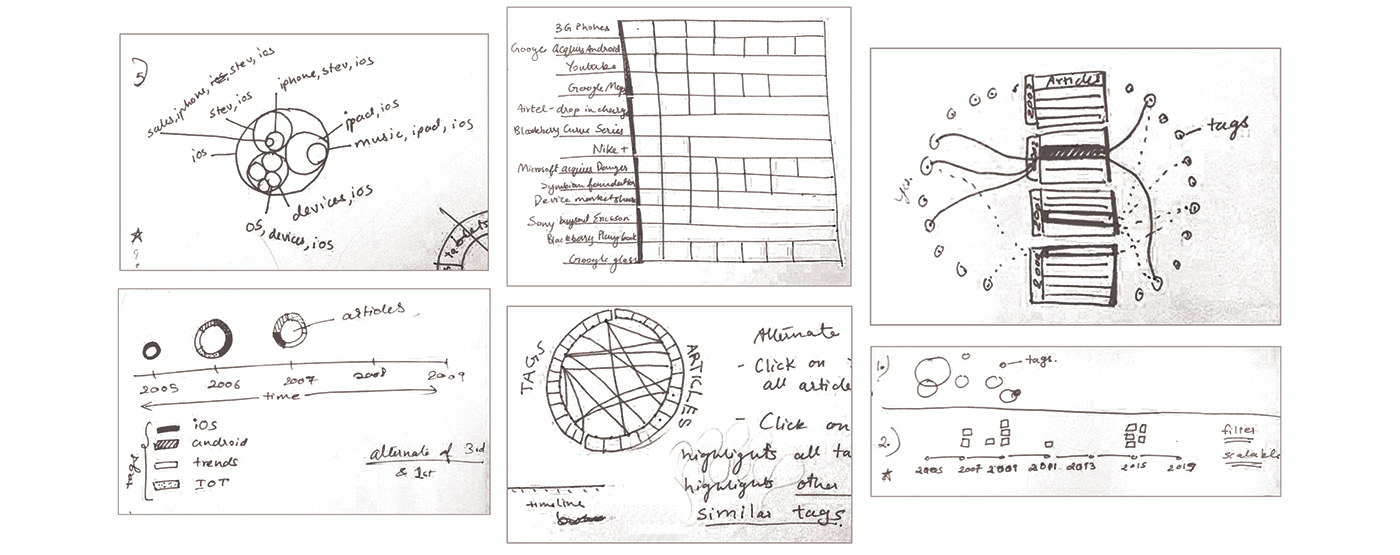 5)
sales, iphone, ios, stev, ios
stev, ios
iphone, stev, ios
ipad, ios
music, ipad, ios
ios
devices, ios
os, devices, ios
tablets
articles
2005 2006 2007 2008 2009
time
tags
iOS
android
trends
IOT
alternate of 3rd
& 1st
3G Phones
Google acquires Android
Youtube
Google Maps
Airtel - drop in charge
Blackberry Curve Series
Nike +
Microsoft acquires Danger
Symbian foundation
Device marketshare
Sony buyout Ericsson
Blackberry Playbook
Google glass
TAGS
ARTICLES
Alternate
- Click on
all article
- Click on
highlights all ta
highlights other
similar tags.
timeline
Articles
tags
1.)
tags.
2.)
2005 2007 2009 2011 2013 2015 2019
filter
scalable